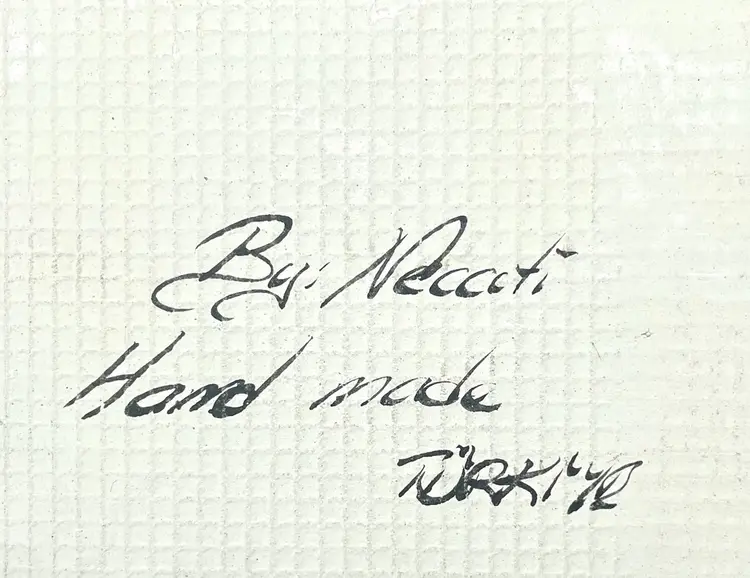 By: Necati
Hand made
TÜRKİYE